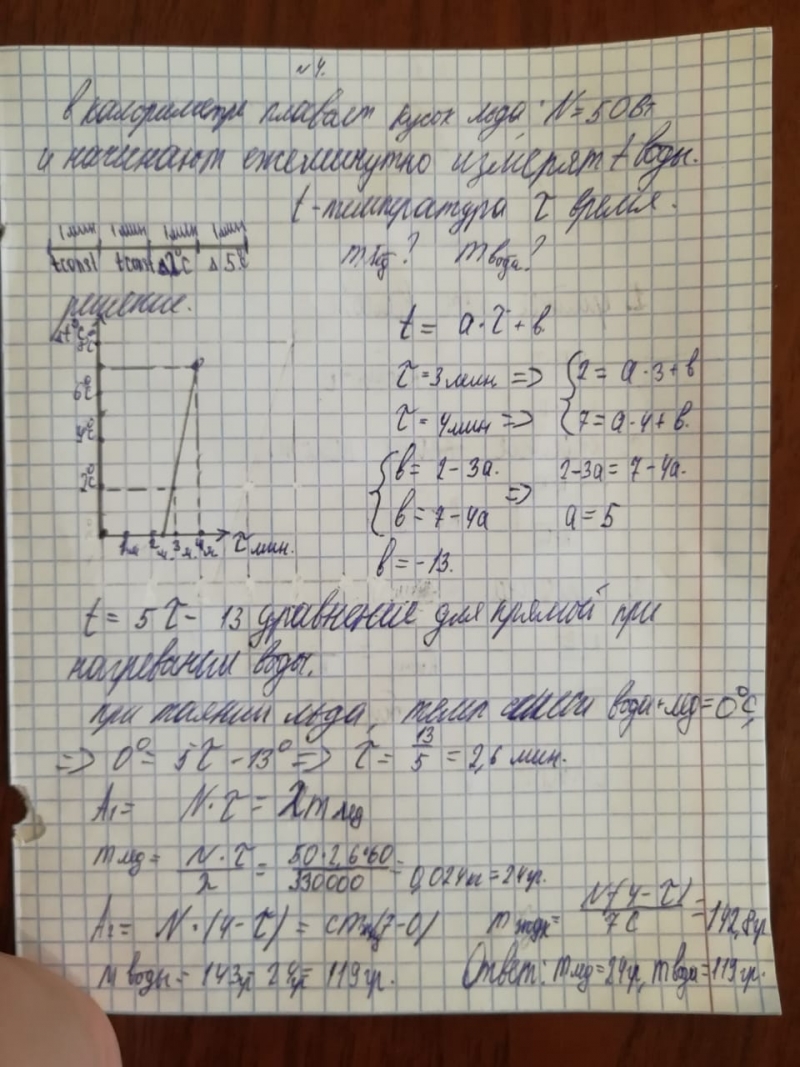 №4.
в калориметре плавает кусок льда. N=50Вт
и начинают ежеминутно измерят t воды.
t-температура τ время.
1 мин 1 мин 1 мин 1 мин
tconst tconst Δ2°C Δ5°C
m лед? m вода?
решение.
Δt°C
8°C
6°C
4°C
2°C
1м 2м 3м 4м τ мин.
t = a·τ + в
τ=3мин => { 2 = a·3+в
τ=4мин => { 7=a·4+в.
{ в= 2-3a. 2-3a= 7-4a.
{ в= 7-4a => a=5
в=-13.
t= 5τ- 13 уравнение для прямой при
нагревании воды.
при таянии льда, темп смеси вода+лед=0°C,
=> 0°= 5τ-13° => τ= 13/5 = 2,6 мин.
A₁= N·τ= λm лед
m лед= N·τ/λ = 50·2,6·60/330000 = 0,024кг=24гр.
A₂= N·(4-τ)= cm жид(7-0) m жидк= N(4-τ)/7c =142,8гр
m воды= 143гр- 24гр= 119гр. Ответ: m лед=24гр, m вода=119гр.